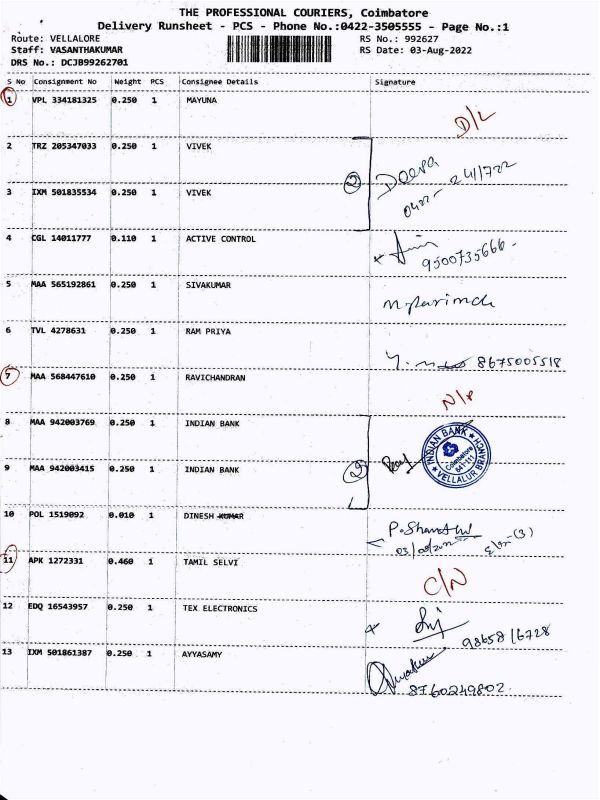 THE PROFESSIONAL COURIERS, Coimbatore
Delivery Runsheet - PCS - Phone No.:0422-3505555 - Page No.:1
Route: VELLALORE RS No.: 992627
Staff: VASANTHAKUMAR RS Date: 03-Aug-2022
DRS No.: DCJB99262701
S No Consignment No Weight PCS Consignee Details Signature
1 VPL 334181325 0.250 1 MAYUNA
D/L
2 TRZ 205347033 0.250 1 VIVEK
3 IXM 501835534 0.250 1 VIVEK
2
Deepa
4 CGL 14011777 0.110 1 ACTIVE CONTROL
9500735666
5 MAA 565192861 0.250 1 SIVAKUMAR
6 TVL 4278631 0.250 1 RAM PRIYA
8675005518
7 MAA 568447610 0.250 1 RAVICHANDRAN
N/P
8 MAA 942003769 0.250 1 INDIAN BANK
9 MAA 942003415 0.250 1 INDIAN BANK
2
INDIAN BANK
Coimbatore
641-111
VELLALUR BRANCH
10 POL 1519092 0.010 1 DINESH KUMAR
11 APK 1272331 0.460 1 TAMIL SELVI
C/N
12 EDQ 16543957 0.250 1 TEX ELECTRONICS
98658 16728
13 IXM 501861387 0.250 1 AYYASAMY
8760249802